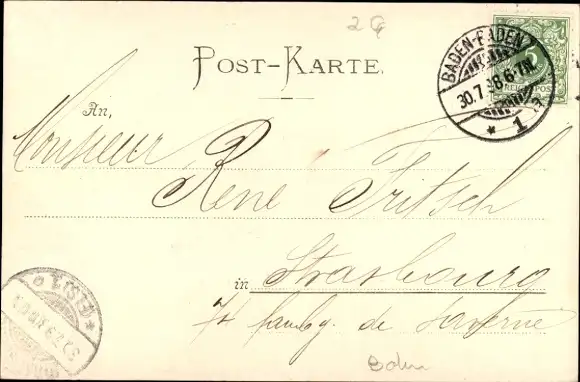 2G
POST-KARTE.
BADEN-BADEN
30.7.98.6-7N.
* 1
REICHSPOST
An,
Monsieur
René Fritsch
in Strasbourg
de Saverne